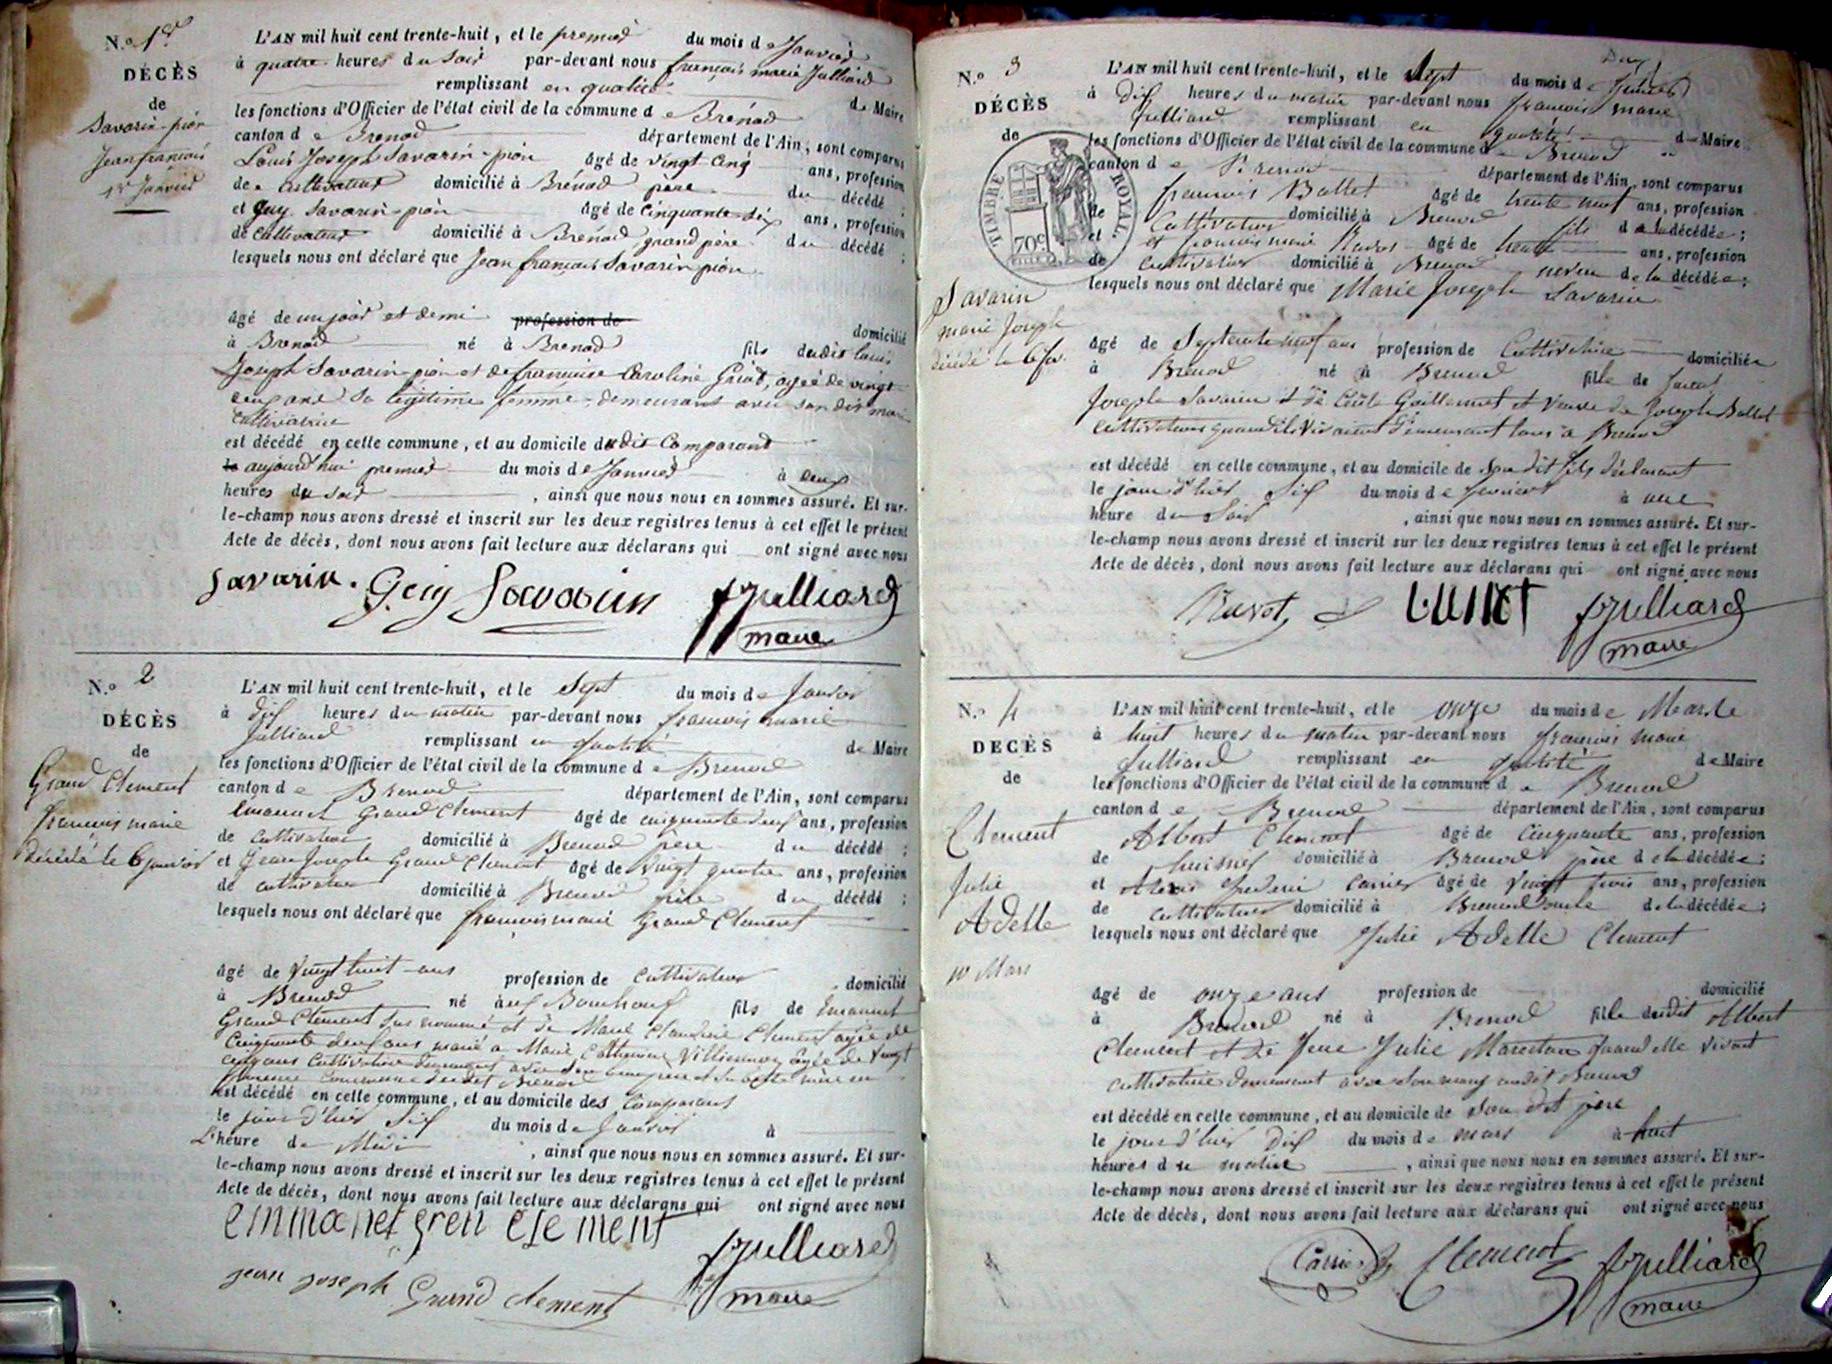 N.o 1er
DÉCÈS
de
Savarin-pion
Jean françois
1er Janvier
L'AN mil huit cent trente-huit, et le premier du mois de Janvier
à quatre heures du Soir par-devant nous françois marie Julliard
remplissant en qualité de Maire
les fonctions d'Officier de l'état civil de la commune de Brénod
canton de Brenod département de l'Ain, sont comparus
Louis Joseph Savarin-pion âgé de vingt cinq ans, profession
de Cultivateur domicilié à Brénod père du décédé ;
et Guy Savarin-pion âgé de cinquante-six ans, profession
de Cultivateur domicilié à Brénod grand père du décédé ;
lesquels nous ont déclaré que Jean françois Savarin pion
âgé de un jour et demi profession de domicilié
à Brenod né à Brenod fils dudit Louis
Joseph Savarin-pion et de françoise Caroline Griot, agée de vingt
cinq ans Sa légitime femme, demeurant avec son dit mari
Cultivatrice
est décédé en cette commune, et au domicile dudit Comparant
le aujourd'hui premier du mois de Janvier à deux
heures du soir , ainsi que nous nous en sommes assuré. Et sur-
le-champ nous avons dressé et inscrit sur les deux registres tenus à cet effet le présent
Acte de décès, dont nous avons fait lecture aux déclarans qui ont signé avec nous
Savarin. Guy Savarin fmJulliard
maire
N.o 2
DÉCÈS
de
Grand Clement
francois marie
décédé le 6 janvier
L'AN mil huit cent trente-huit, et le Sept du mois de Janvier
à dix heures du matin par-devant nous francois marie
Julliard remplissant en qualité de Maire
les fonctions d'Officier de l'état civil de la commune de Brenod
canton de Brenod département de l'Ain, sont comparus
Emanuel Grand Clement âgé de cinquante deux ans, profession
de Cultivateur domicilié à Brenod père du décédé ;
et Jean Joseph Grand Clement âgé de Vingt quatre ans, profession
de cultivateur domicilié à Brenod frère du décédé ;
lesquels nous ont déclaré que francois marie Grand Clement
âgé de Vingt huit ans profession de Cultivateur domicilié
à Brenod né aux Bouchoux fils de Emanuel
Grand Clement sus nommé et de Marie Claudine Clement agée de
Cinquante deux ans marié a Marie Catherine Villiermoz agée de Vingt
cinq ans Cultivatrice demeurant avec son beau père et sa belle mère en
commune dudit Brenod
est décédé en cette commune, et au domicile des Comparans
le jour d'hier Six du mois de Janvier à
L'heure de Midi , ainsi que nous nous en sommes assuré. Et sur-
le-champ nous avons dressé et inscrit sur les deux registres tenus à cet effet le présent
Acte de décès, dont nous avons fait lecture aux déclarans qui ont signé avec nous
emmanel gren clement fmJulliard
jean joseph Grand clement maire
N.o 3
DÉCÈS
de
TIMBRE ROYAL.
70c
Savarin
marie Joseph
décédé le 6 fer.
L'AN mil huit cent trente-huit, et le Sept du mois de fevrier
à Dix heures du matin par-devant nous francois marie
Julliard remplissant en qualité de Maire
les fonctions d'Officier de l'état civil de la commune de Brenod
canton de Brenod département de l'Ain, sont comparus
francois Ballet âgé de trente neuf ans, profession
de Cultivateur domicilié à Brenod fils de la décédée ;
et francois marie Ravot âgé de trente ans, profession
de cultivateur domicilié à Brenod neveu de la décédée ;
lesquels nous ont déclaré que Marie Joseph Savarin
âgé de Septante neuf ans profession de Cultivatrice domiciliée
à Brenod né à Brenod fille de
Joseph Savarin et de Guillermet et Veuve de Joseph Ballet
cultivateurs quand ils Vivaient demeurant tous a Brenod
est décédé en cette commune, et au domicile de Son dit fils déclarant
le jour d'hier Six du mois de fevrier à une
heure du Soir , ainsi que nous nous en sommes assuré. Et sur-
le-champ nous avons dressé et inscrit sur les deux registres tenus à cet effet le présent
Acte de décès, dont nous avons fait lecture aux déclarans qui ont signé avec nous
Ravot fmJulliard
maire
N.o 4
DECÈS
de
Clement
Julie
Adelle
10 Mars
L'AN mil huit cent trente-huit, et le onze du mois de Mars
à huit heures du matin par-devant nous francois marie
Julliard remplissant en qualité de Maire
les fonctions d'Officier de l'état civil de la commune de Brenod
canton de Brenod département de l'Ain, sont comparus
Albert Clement âgé de Cinquante ans, profession
de huissier domicilié à Brenod père de la décédée ;
et Carrier âgé de Vingt trois ans, profession
de cultivateur domicilié à Brenod oncle de la décédée ;
lesquels nous ont déclaré que Julie Adelle Clement
âgé de onze ans profession de domicilié
à Brenod né à Brenod fille dudit Albert
Clement et de feue Julie quand elle vivait
cultivatrice demeurant avec son mary audit Brenod
est décédé en cette commune, et au domicile de Son dit père
le jour d'hier Dix du mois de mars à huit
heures du matin , ainsi que nous nous en sommes assuré. Et sur-
le-champ nous avons dressé et inscrit sur les deux registres tenus à cet effet le présent
Acte de décès, dont nous avons fait lecture aux déclarans qui ont signé avec nous
Carrier Clement fmJulliard
maire